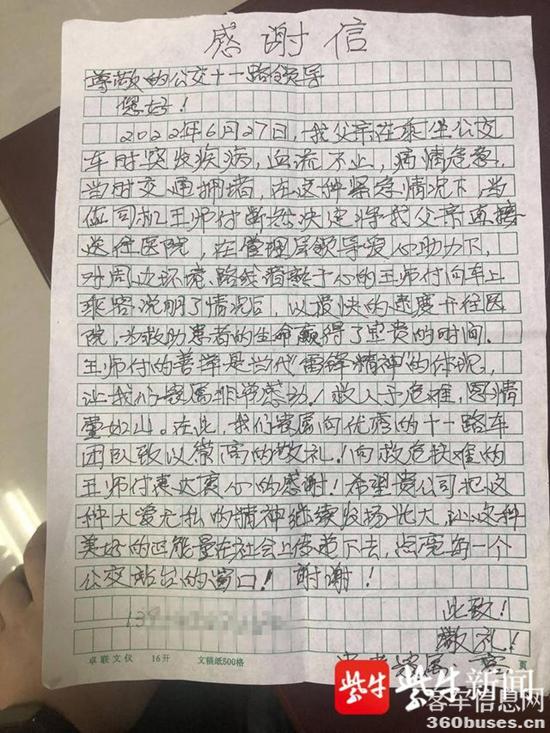 感谢信
尊敬的公交十一路领导
您好！
2022年6月27日，我父亲在乘坐公交
车时突发疾病，血流不止，病情危急，
当时交通拥堵，在这种紧急情况下，当
位司机王师付断然决定将我父亲直接
送往医院，在管理层领导爱心助力下，
对周边环境、路线着熟于心的王师付向车上
乘客说明了情况后，以最快的速度开往医
院，为救助患者的生命赢得了宝贵的时间。
王师付的善举是当代雷锋精神的体现，
让我们家属非常感动。救人于危难，恩情
重如山。在此，我们家属向优秀的十一路车
团队致以崇高的敬礼！向救危扶难的
王师付表达衷心的感谢！希望贵公司把这
种大爱无私的精神继续发扬光大，让这种
美好的正能量在社会上传递下去，点亮每一个
公交站台的窗口！谢谢！
此致！
敬礼！
139
患者家属
卓联文仪 16开 文稿纸500格 页
紫牛 紫牛新闻
客车信息网
360buses.cn